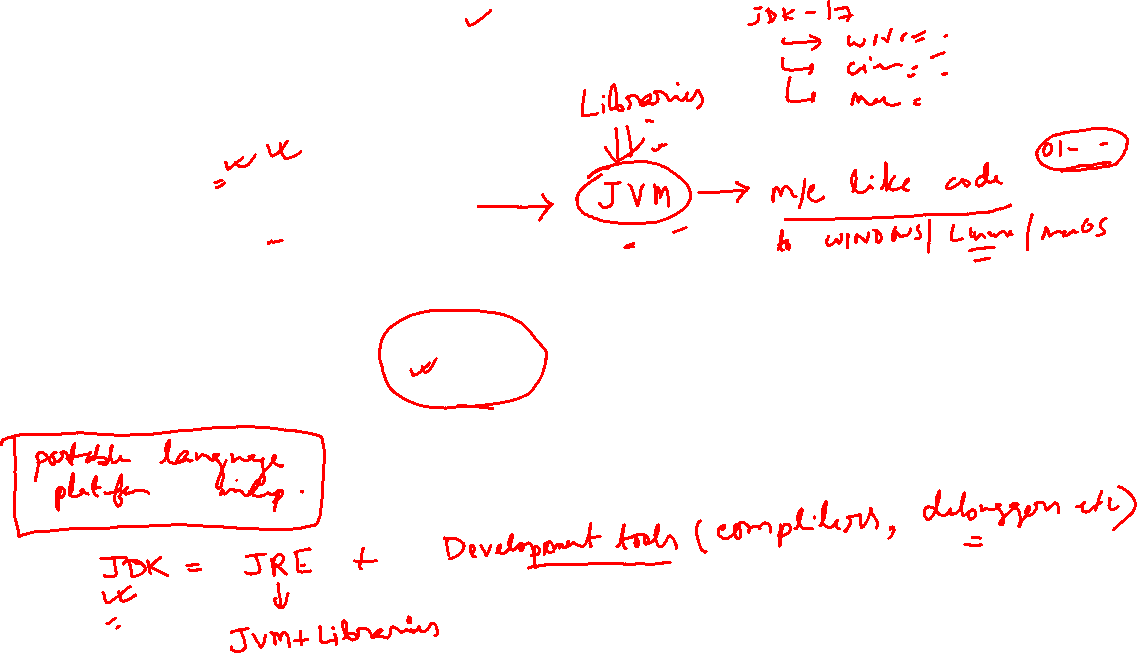 JDK-17
Libraries
JVM
m/c like code
01--
to WINDOWS / Linux / macOS
portable language
platform indep.
JDK = JRE + Development tools (compliters, debuggers etc)
JVM + Libraries